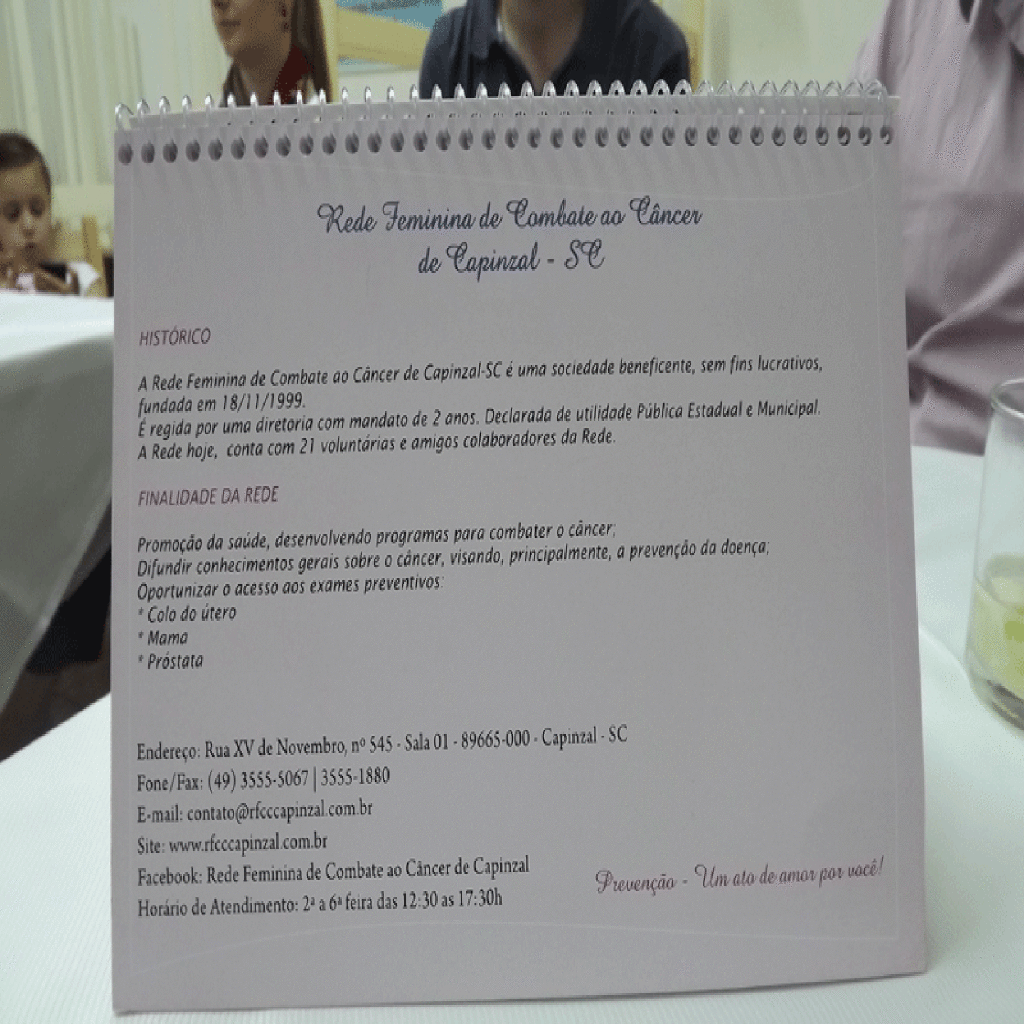 Rede Feminina de Combate ao Câncer
de Capinzal - SC
HISTÓRICO
A Rede Feminina de Combate ao Câncer de Capinzal-SC é uma sociedade beneficente, sem fins lucrativos,
fundada em 18/11/1999.
É regida por uma diretoria com mandato de 2 anos. Declarada de utilidade Pública Estadual e Municipal.
A Rede hoje, conta com 21 voluntárias e amigos colaboradores da Rede.
FINALIDADE DA REDE
Promoção da saúde, desenvolvendo programas para combater o câncer;
Difundir conhecimentos gerais sobre o câncer, visando, principalmente, a prevenção da doença;
Oportunizar o acesso aos exames preventivos:
* Colo do útero
* Mama
* Próstata
Endereço: Rua XV de Novembro, nº 545 - Sala 01 - 89665-000 - Capinzal - SC
Fone/Fax: (49) 3555-5067 | 3555-1880
E-mail: contato@rfcccapinzal.com.br
Site: www.rfcccapinzal.com.br
Facebook: Rede Feminina de Combate ao Câncer de Capinzal
Horário de Atendimento: 2ª a 6ª feira das 12:30 as 17:30h
Prevenção - Um ato de amor por você!